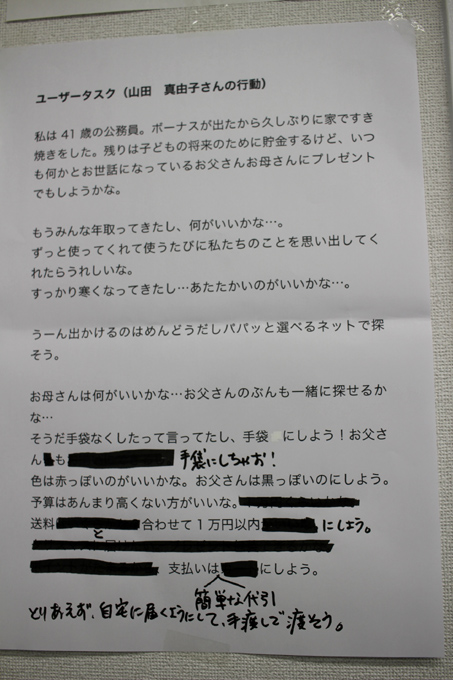 ユーザータスク（山田　真由子さんの行動）
私は 41 歳の公務員。ボーナスが出たから久しぶりに家ですき
焼きをした。残りは子どもの将来のために貯金するけど、いつ
も何かとお世話になっているお父さんお母さんにプレゼント
でもしようかな。
もうみんな年取ってきたし、何がいいかな…。
ずっと使ってくれて使うたびに私たちのことを思い出してく
れたらうれしいな。
すっかり寒くなってきたし…あたたかいのがいいかな…。
うーん出かけるのはめんどうだしパパッと選べるネットで探
そう。
お母さんは何がいいかな…お父さんのぶんも一緒に探せるか
な…
そうだ手袋なくしたって言ってたし、手袋 にしよう！お父さ
ん も 手袋にしちゃお！
色は赤っぽいのがいいかな。お父さんは黒っぽいのにしよう。
予算はあんまり高くない方がいいな。
送料 と 合わせて 1 万円以内 にしよう。
支払いは 簡単な代引 にしよう。
とりあえず、自宅に届くようにして、手渡しで渡そう。